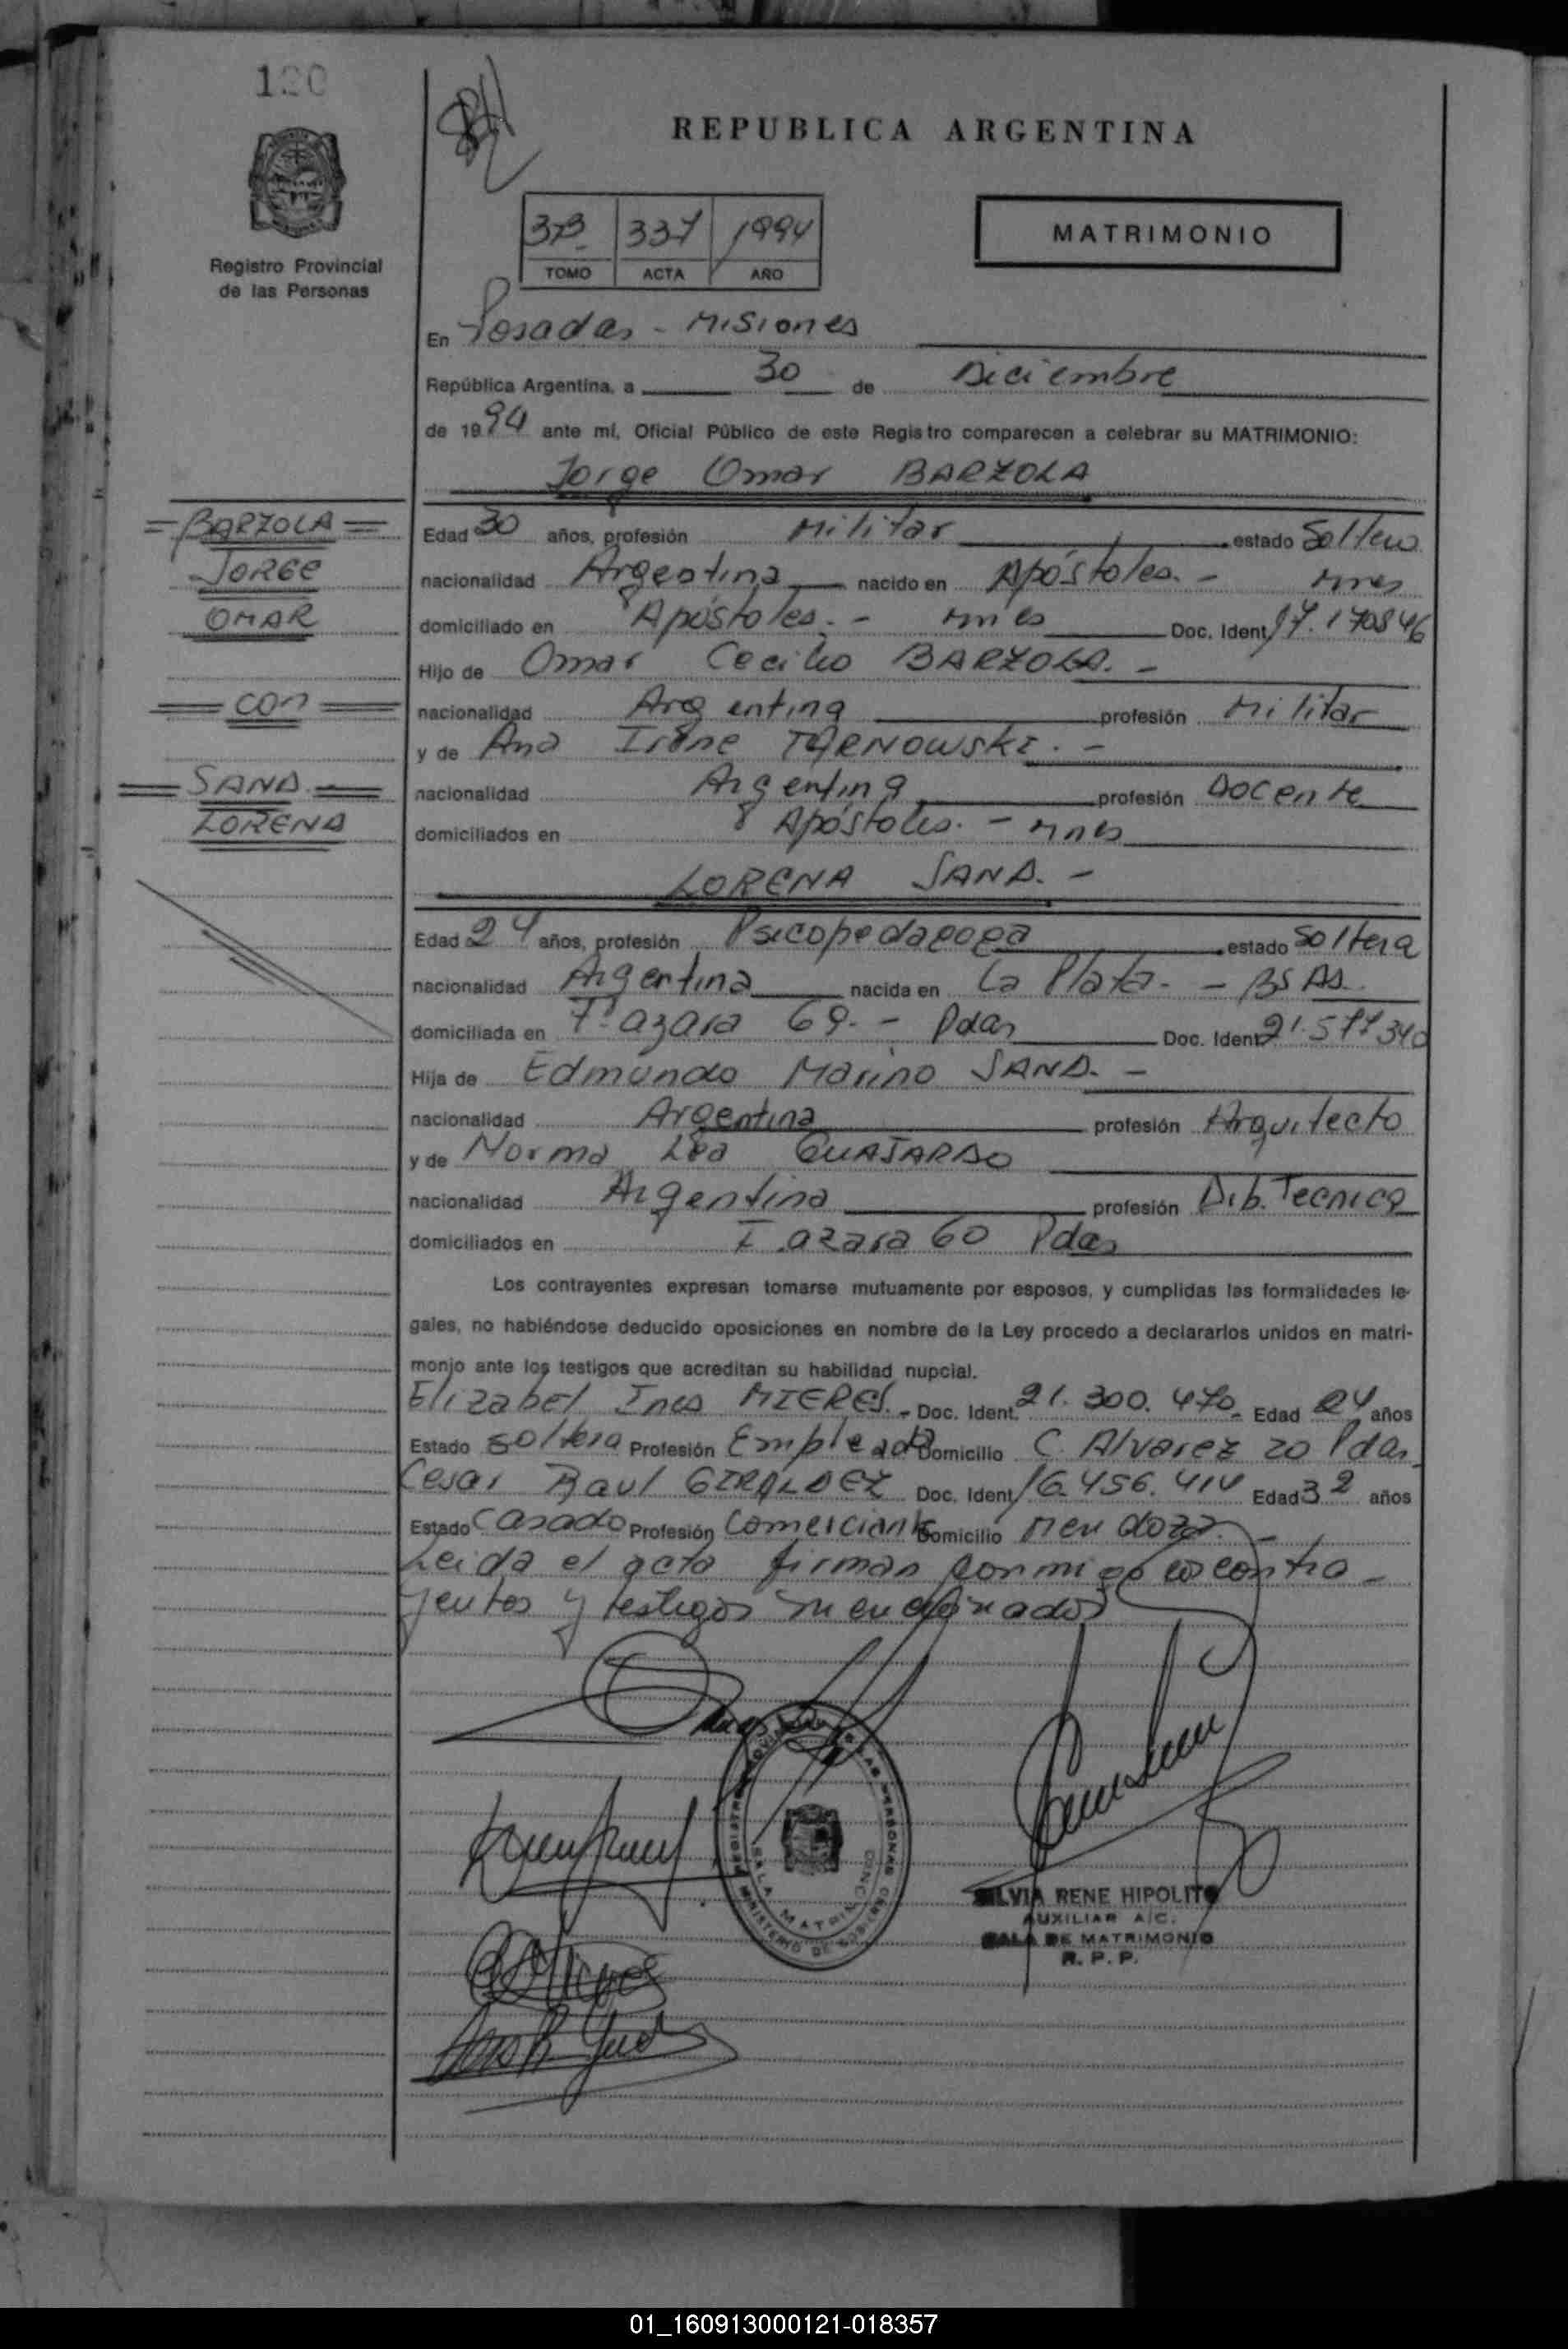 120
REPUBLICA ARGENTINA
Registro Provincial
de las Personas
373 337 1994
TOMO ACTA AÑO
MATRIMONIO
En Posadas - Misiones
República Argentina, a 30 de Diciembre
de 1994 ante mí, Oficial Público de este Registro comparecen a celebrar su MATRIMONIO:
Jorge Omar BARZOLA
= BARZOLA =
JORGE
OMAR
= con =
= SAND. =
LORENA
Edad 30 años, profesión Militar estado Soltero
nacionalidad Argentina nacido en Apóstoles. - Mnes
domiciliado en Apóstoles. - Mnes Doc. Ident. 17.170846
Hijo de Omar Cecilio BARZOLA. -
nacionalidad Argentina profesión Militar
y de Ana Irene TARNOWSKI. -
nacionalidad Argentina profesión Docente
domiciliados en Apóstoles. - Mnes
LORENA SAND. -
Edad 24 años, profesión Psicopedagoga estado Soltera
nacionalidad Argentina nacida en La Plata. - BS AS.
domiciliada en F. azara 69. - Pdas Doc. Ident. 21.577340
Hija de Edmundo Marino SAND. -
nacionalidad Argentina profesión Arquitecto
y de Norma Lea GUAJARDO
nacionalidad Argentina profesión Dib. Tecnica
domiciliados en F. azara 60 Pdas
Los contrayentes expresan tomarse mutuamente por esposos, y cumplidas las formalidades le-
gales, no habiéndose deducido oposiciones en nombre de la Ley procedo a declararlos unidos en matri-
monio ante los testigos que acreditan su habilidad nupcial.
Elizabel Ines MIERES. - Doc. Ident. 21.300.470 - Edad 24 años
Estado Soltera Profesión Empleada Domicilio C. Alvarez 20 Pdas
Cesar Raul GIRALDEZ Doc. Ident. 16.456.414 Edad 32 años
Estado Casado Profesión Comerciante Domicilio Mendoza. -
Leida el acta firman conmigo los contra-
yentes y testigos mencionados
REGISTRO PROVINCIAL DE LAS PERSONAS
SALA MATRIMONIO
MINISTERIO DE GOBIERNO
SILVIA RENE HIPOLITO
AUXILIAR A/C.
SALA DE MATRIMONIO
R. P. P.
01_160913000121-018357